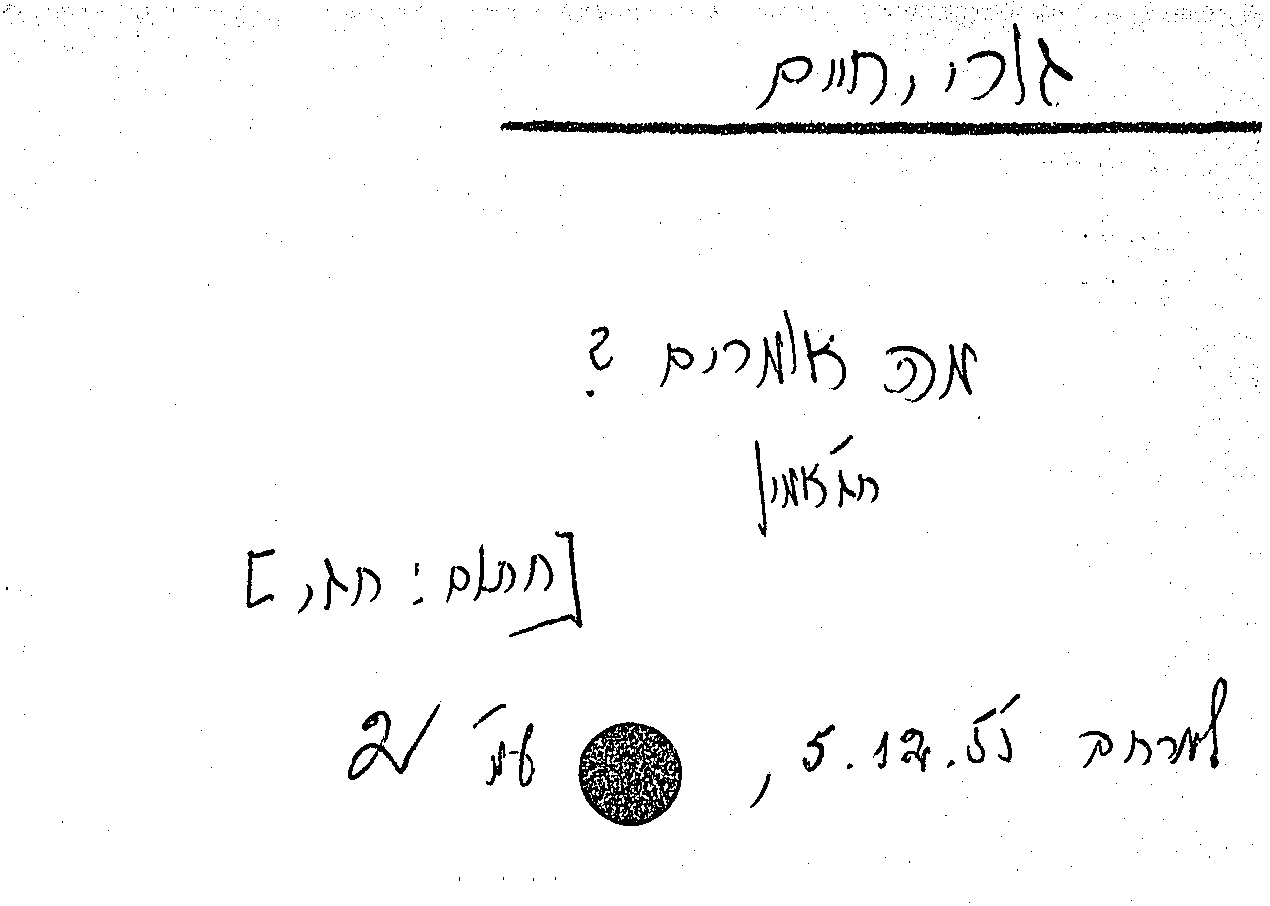 גורי, חיים
מה אומרים ?
חג'אמין
[חתום: חג,]
למרחב 5.12.55, עמ' 2